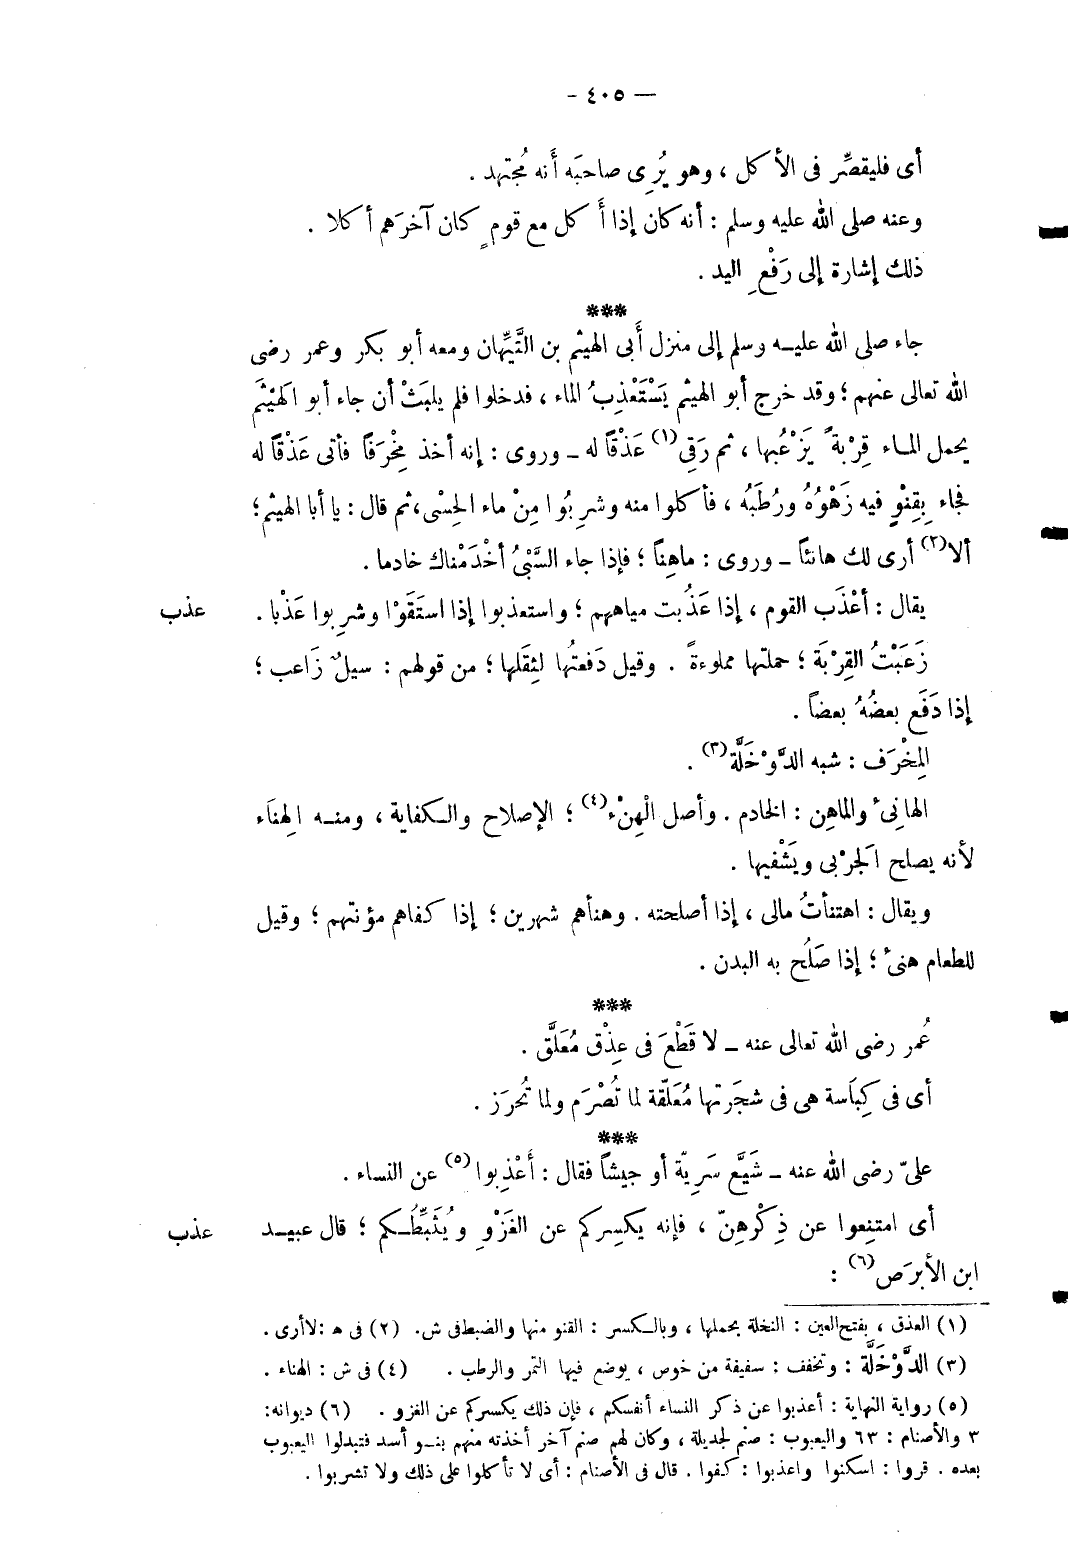 — ٤٠٥ -
أى فليقصِّر فى الأكل ، وهو يُرِى صاحبَه أَنه مُجتهد .
وعنه صلى الله عليه وسلم : أنه كان إذا أَكل مع قومٍ كان آخرَهم أكلا .
ذلك إشارة إلى رَفْعِ اليد .
***
جاء صلى الله عليه وسلم إلى منزل أَبى الهيثم بن التَّيِّهان ومعه أبو بكر وعمر رضى
الله تعالى عنهم ؛ وقد خرج أبو الهيثم يَسْتَعْذِبُ الماء ، فدخلوا فلم يلبَثْ أن جاء أبو الهَيْثَم
يحمل الماء قِرْبةً يَزْعُبها ، ثم رَقِى (١) عَذْقًا له ــ وروى : إنه أخذ مِخْرَفًا فأتى عَذْقًا له
فجاء بِقِنْوٍ فيه زَهْوُهُ ورُطَبُه ، فأكلوا منه وشربُوا مِنْ ماء الحِسْى، ثم قال : يا أبا الهيثم ؛
ألا (٢) أرى لك هانئًا ــ وروى : ماهِنًا ؛ فإذا جاء السَّبْىُ أخْدَمْناك خادما .
يقال : أعْذَب القوم ، إذا عَذُبت مياههم ؛ واستعذبوا إذا استَقَوْا وشربوا عَذْبا .
عذب
زَعَبْتُ القِرْبَة ؛ حملتها مملوءةً . وقيل دَفعتُها لثِقَلها ؛ من قولهم : سيلٌ زَاعب ؛
إذا دَفَع بعضُهُ بعضاً .
المِخْرَف : شبه الدَّوْخَلَّة (٣) .
الهانِئ والماهِن : الخادم . وأصل الْهِنْء (٤) ؛ الإصلاح والكفاية ، ومنه الهِنَاء
لأنه يصلح الجَرْبى ويَشْفيها .
ويقال : اهتنأتُ مالى ، إذا أصلحته . وهنأهم شهرين ؛ إذا كفاهم مؤنتهم ؛ وقيل
للطعام هنئ ؛ إذا صَلُح به البدن .
***
عُمر رضى الله تعالى عنه ــ لا قَطْعَ فى عِذْق مُعَلَّق .
أى فى كِبَاسة هى فى شجَرتها مُعَلّقة لما تُصْرَم ولما تُحرَز .
***
علىّ رضى الله عنه ــ شَيَّع سَرِيّة أو جيشًا فقال : أَعْذِبوا (٥) عن النساء .
أى امتنِعوا عن ذِكْرهنّ ، فإنه يكسِركم عن الغَزْوِ ويُثَبِّطُكم ؛ قال عبيد
عذب
ابن الأبرَص (٦) :
(١) العذق ، بفتح العين : النخلة بحملها ، وبالكسر : القنو منها والضبط فى ش. (٢) فى هـ : لا أرى .
(٣) الدَّوْخَلَّة : وتخفف : سفيفة من خوص ، يوضع فيها التمر والرطب . (٤) فى ش : الهناء .
(٥) رواية النهاية : أعذبوا عن ذكر النساء أنفسكم ، فإن ذلك يكسركم عن الغزو . (٦) ديوانه:
٣ والأصنام : ٦٣ واليعبوب : صنم لجديلة ، وكان لهم صنم آخر أخذته منهم بنو أسد فتبدلوا اليعبوب
بعده . قروا : اسكنوا واعذبوا : كفوا . قال فى الأصنام : أى لا تأكلوا على ذلك ولا تشربوا .